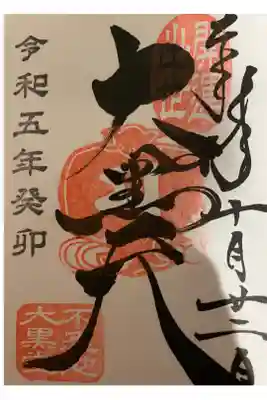 奉拝 十月廿二日
大黒天
令和五年癸卯
大黒